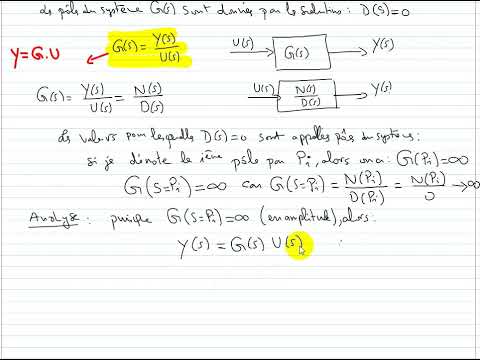 Les pôles du système G(s) sont donnés par les solutions : D(s)=0
Y=G.U
G(s) = Y(s)/U(s)
U(s) G(s) Y(s)
G(s) = Y(s)/U(s) = N(s)/D(s)
U(s) N(s)/D(s) Y(s)
Les valeurs pour lesquelles D(s)=0 sont appelées pôles du système :
si je dénote le ième pôle par Pi, alors on a : G(Pi)=∞
G(s=Pi)=∞ car G(s=Pi) = N(Pi)/D(Pi) = N(Pi)/0 → ∞
Analyse : puisque G(s=Pi)=∞ (en amplitude), alors :
Y(s) = G(s) U(s)